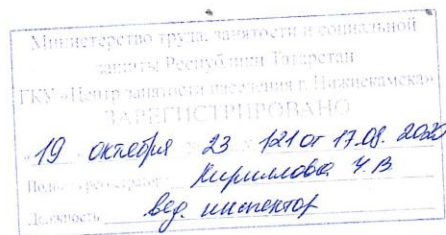 Министерство труда, занятости и социальной
защиты Республики Татарстан
ГКУ «Центр занятости населения г. Нижнекамска»
ЗАРЕГИСТРИРОВАНО
«19 октября 23 121 от 17.08. 2020
Кириллова Ч.В
Должность вед. инспектор